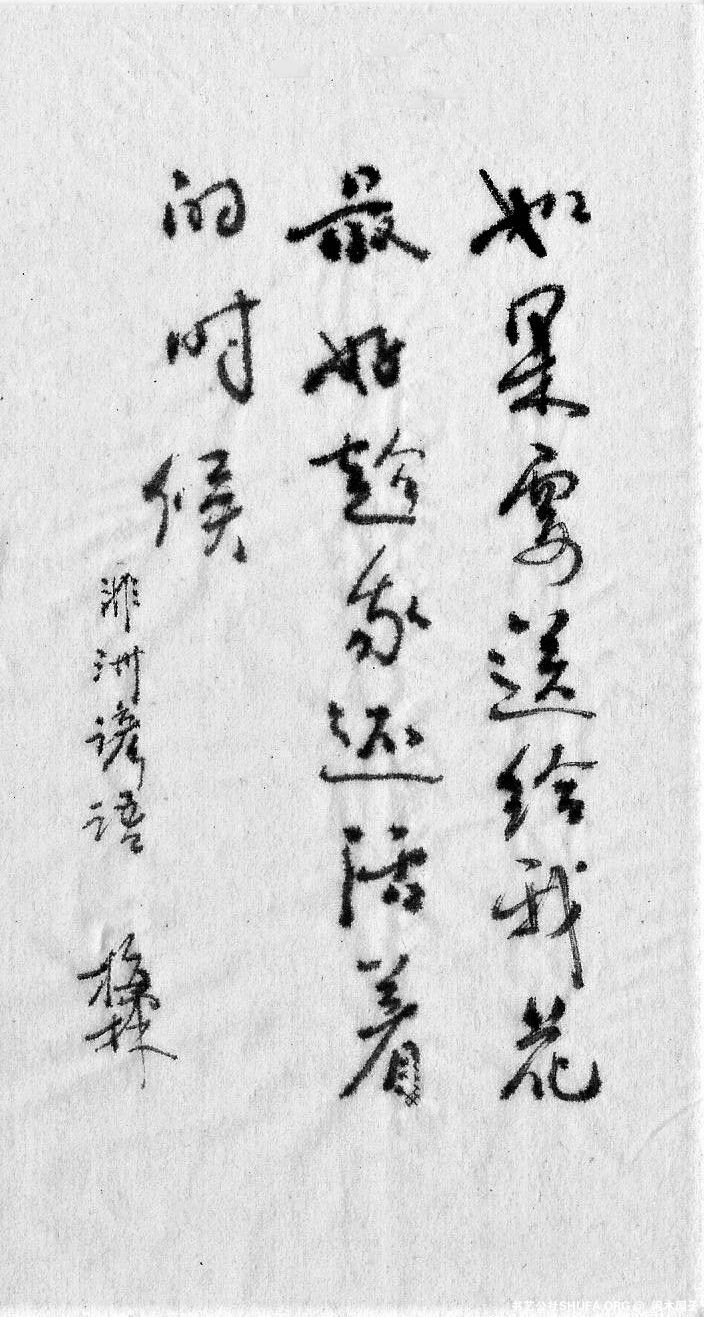 如果要送给我花
最好趁我还活着
的时候
非洲谚语
SHUFA.ORG @